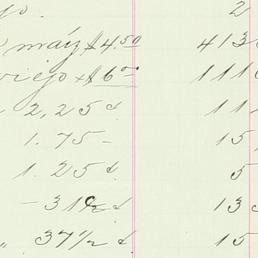 jo. 2
maíz $4.50 413
viejo $6.00 111
2,25 ¢ 11
1.75 - 15
1.25 ¢ 5
- 31 ¢ 13
" 37 1/2 ¢ 15